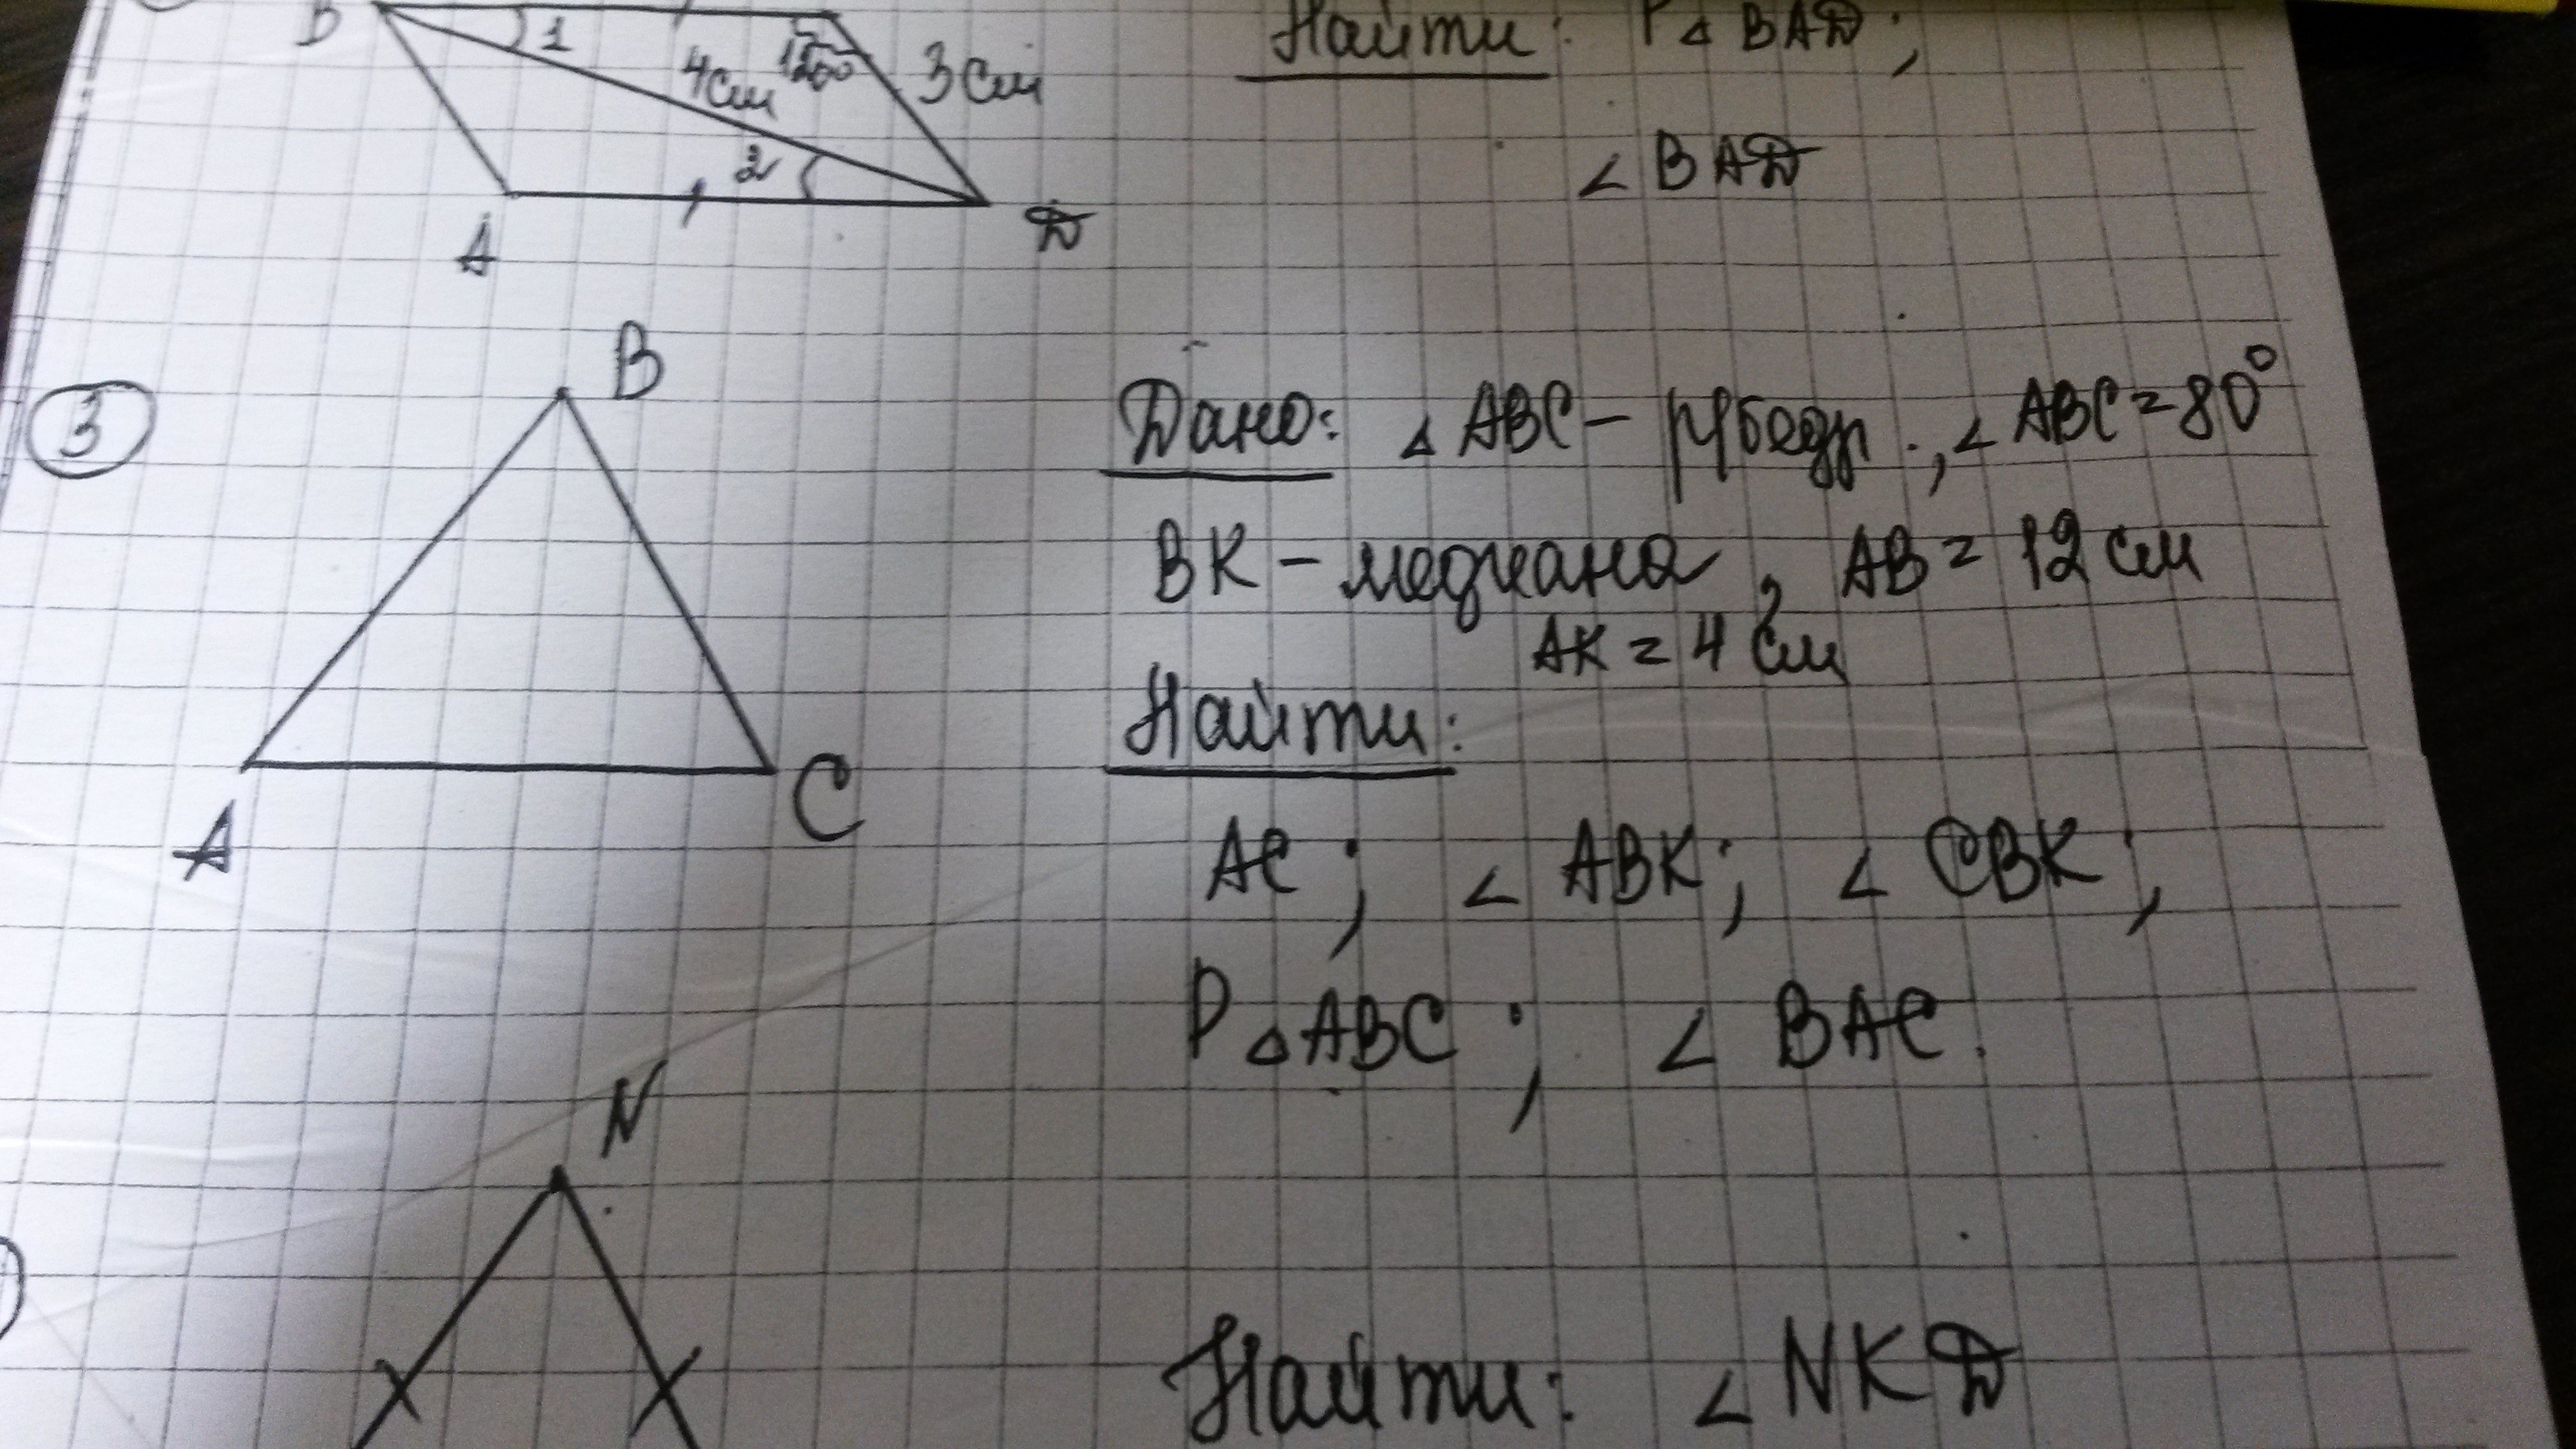 B
1
4см
120°
3 см
2
A
D
Найти: P △ BAD;
∠ BAD
3
B
A
C
Дано: △ ABC – р/бедр., ∠ ABC = 80°
BK – медиана, AB = 12 см
AK = 4 см
Найти:
AC; ∠ ABK; ∠ CBK;
P △ ABC; ∠ BAC.
N
Найти: ∠ NKD